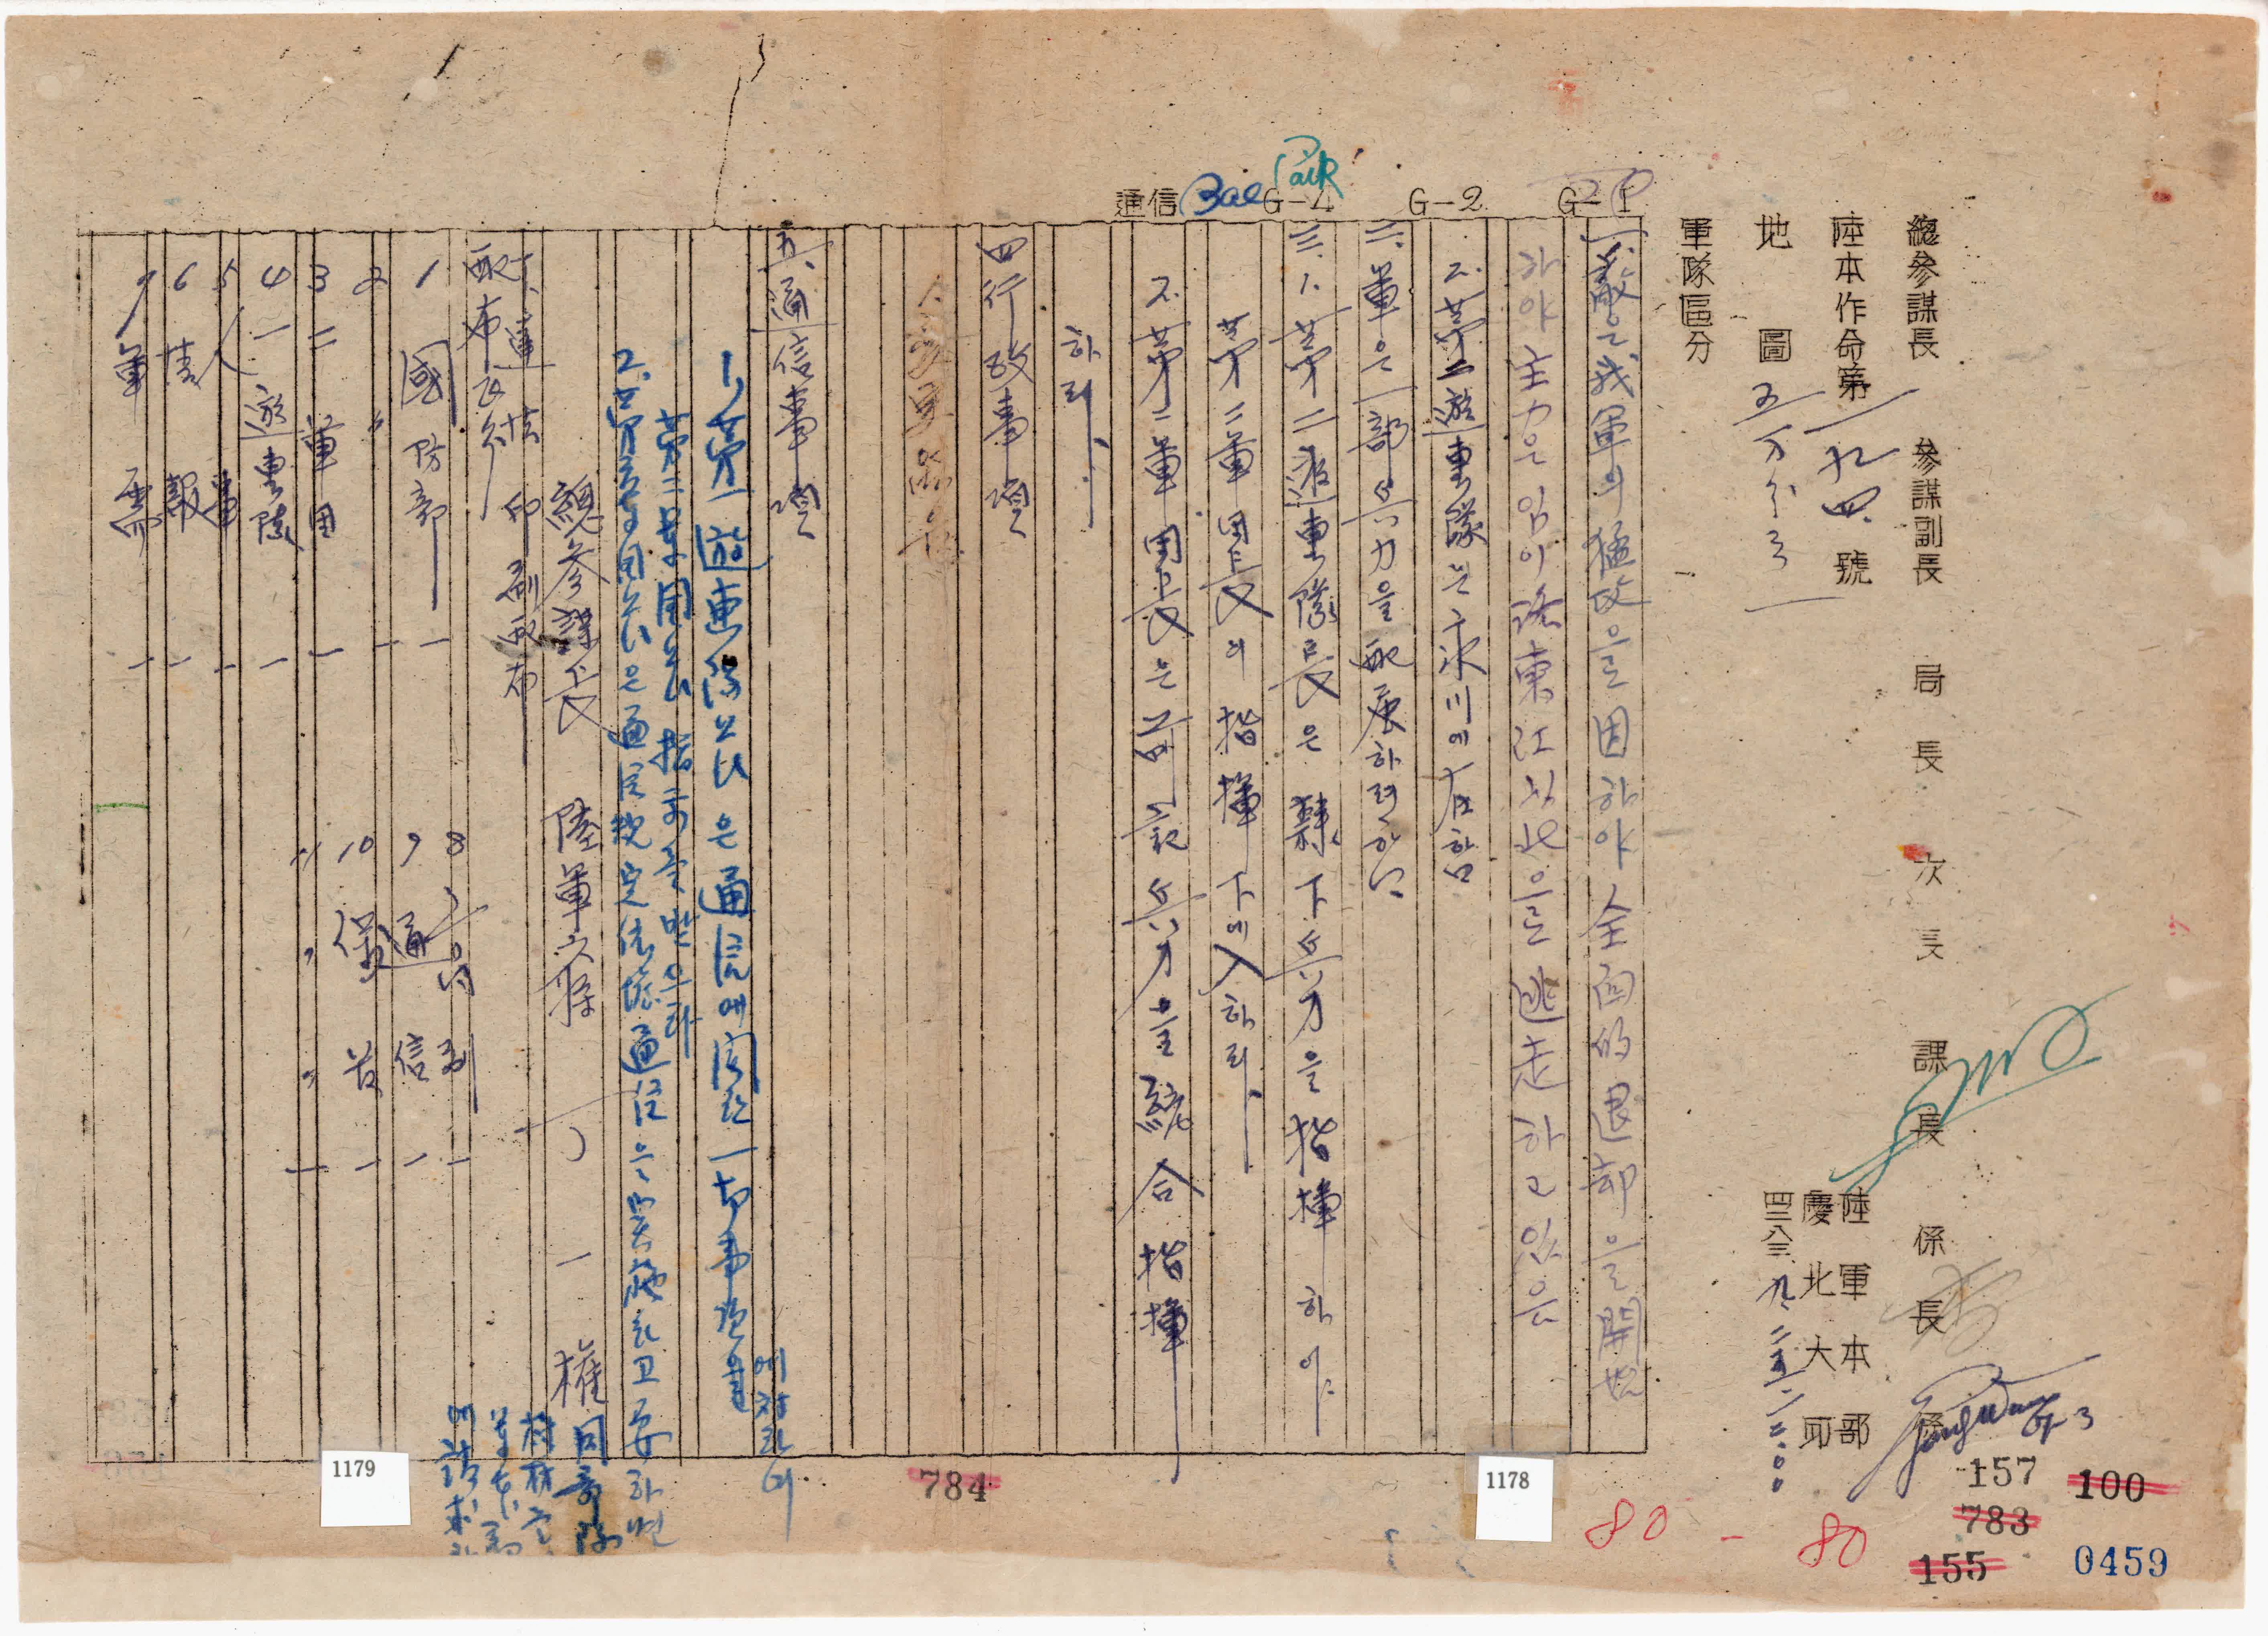 總參謀長 參謀副長 局長 次長 課長 係長 係
陸本作命第一九四號
陸軍本部
慶北大邱
地圖 五万分之一
四二八三、九、二五、一二:〇〇
軍隊區分
G-1
G-2
G-4
通信
Paik
Bae
G-3
一、1.敵은 我軍의 猛攻으로 因하야 全面的 退却을 開始
하야 主力은 임이 洛東江以北으로 逃走하고 있음
2.第一遊擊隊는 永川에 在함
二、軍은 一部 兵力을 配屬하려 함
三、1.第一遊擊隊長은 隸下兵力을 指揮하야
第二軍團長의 指揮下에 入하라.
2.第二軍團長은 前記 兵力을 統合指揮
하라.
四 行政事項
五、通信事項
1,第一遊擊隊長은 通信에 関한 一切事項을
에 対하여
第二軍団長 指示를 받으라
2.第二軍団長은 通信規定依據 通信을 實施하고 要하면
同部隊
總參謀長 陸軍少將 丁一權
下達法 印刷配布
配布區分
1 國防部 一
2 〃 一
3 二軍団 一
4 一遊擊隊 一
5 人事 一
6 情報 一
7 軍需 一
8 一
9 通信 一
10 一
11 〃 〃 一
1178
1179
784
157
100
783
155
0459
80 - 80